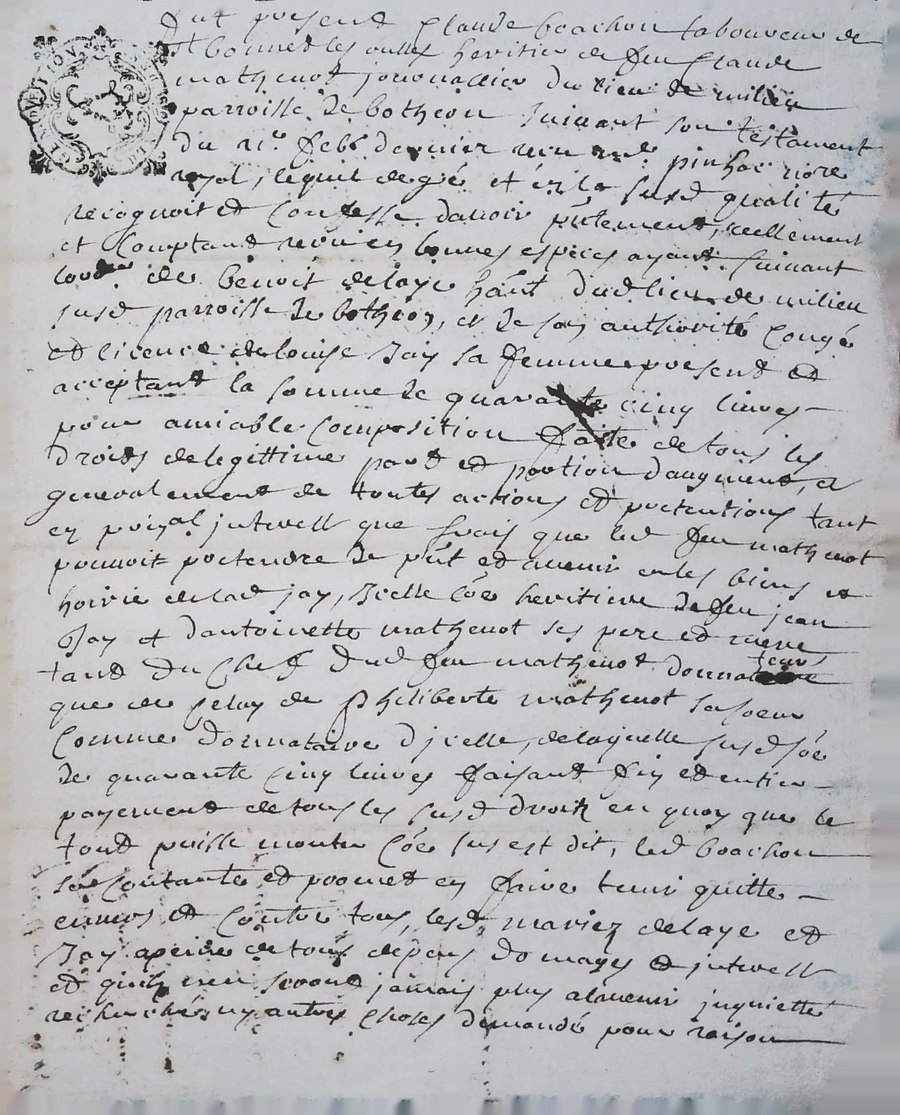 fut present Claude boachon laboureur de
st bonnet les oulles heritier de feu Claude
mathenot journallier du lieu de milieu
parroisse de botheon suivant son testament
du xi.e feb.r dernier receu me pinhac no.re
royal, lequel de gré et en la susd qualité
recognoit et confesse davoir p̃ntement, reellement
et comptand receu en bonnes especes ayant. suivant
de benoit delaye dud lieu de milieu
susd parroisse de botheon, et de son authorité congé
et licence de louise Jay sa femme present et
acceptant la somme de quarante cinq livres
pour amiable composition faite de tous les
droits de legittime part et portion daugment, et
generalement de toutes actions et pretentions tant
en prĩpal jnterest que frais que led feu mathenot
pouvoit pretendre de p̃nt et avenir en les biens et
hoirie de lad jay, Jcelle cõe heritiere de feu jean
Jay et dantoinette mathenot ses pere et mere
tand du chef dud feu mathenot
que de celuy de philiberte mathenot sa soeur
comme donnataire djcelle, de laquelle susd sõe
de quarante cinq livres faisant fin et entier
payement de tous les susd droitz en quoy que le
tout puisse monter cõe sus est dit, led boachon
se contante et promet en faire tenir quitte
envers et contre tous, lesd mariez delaye et
Jay a peine de tous depens domages et jnterest
et quilz nen seront jamais plus a lavenir jnquietté
recherchés ny autres choses demandé pour raison